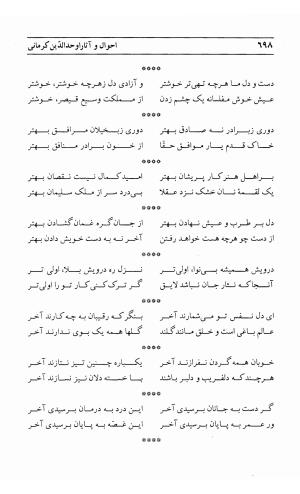 ۶۹۸ احوال و آثار اوحدالدّین کرمانی
****
دست و دل ما هرچه تهی‌تر خوشتر و آزادی دل زهرچه خوشتر، خوشتر
عیش خوش مفلسانه یک چشم زدن از مملکت وسیع قیصر، خوشتر
****
دوری زبرادر نه صادق بهتر دوری زبخیلان مرافق بهتر
خاک قدم یار موافق حقّا از خون برادر منافق بهتر
****
براهل هنر کار پریشان بهتر امید کمال نیست نقصان بهتر
یک لقمهٔ نان خشک نزد عقلا بی‌درد سر از ملک سلیمان بهتر
****
دل بر طرب و عیش نهادن بهتر از جان گره غمان گشادن بهتر
از دست چو هرچه هست خواهد رفتن آخر نه به دست خویش دادن بهتر
****
درویش همیشه بی‌نوا، اولی تر نزل ره درویش بلا، اولی تر
آنجا که نثار جان نباشد لایق گر ترک کنی کار تو را اولی تر
****
ای دل نفس تو می‌شمارند آخر بنگر که رقیبان به چه کارند آخر
عالم باغی است و خلق مانند گلند گلها همه یک بوی ندارند آخر
****
خوبان همه گردن نفرازند آخر یکباره چنین تیز نتازند آخر
هرچند که دلفریب و دلبر باشند با خسته دلان نیز نسازند آخر
****
گر دست به جانان برسیدی آخر این درد به درمان برسیدی آخر
ور عمر به پایان برسیدی آخر این غصّه به پایان برسیدی آخر
****